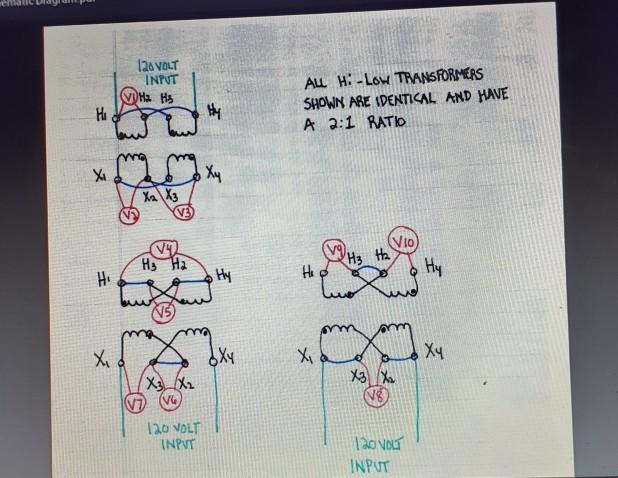 ematic Diagram.pdf
120 VOLT
INPUT
V1 H2 H3
H1 H4
X1 X4
X2 X3
V2 V3
ALL Hi-LOW TRANSFORMERS
SHOWN ARE IDENTICAL AND HAVE
A 2:1 RATIO
V4
H1 H3 H2 H4
V5
X1 X4
X3 X2
V7 V6
120 VOLT
INPUT
V9 V10
H3 H2
H1 H4
X1 X4
X3 X2
V8
120 VOLT
INPUT